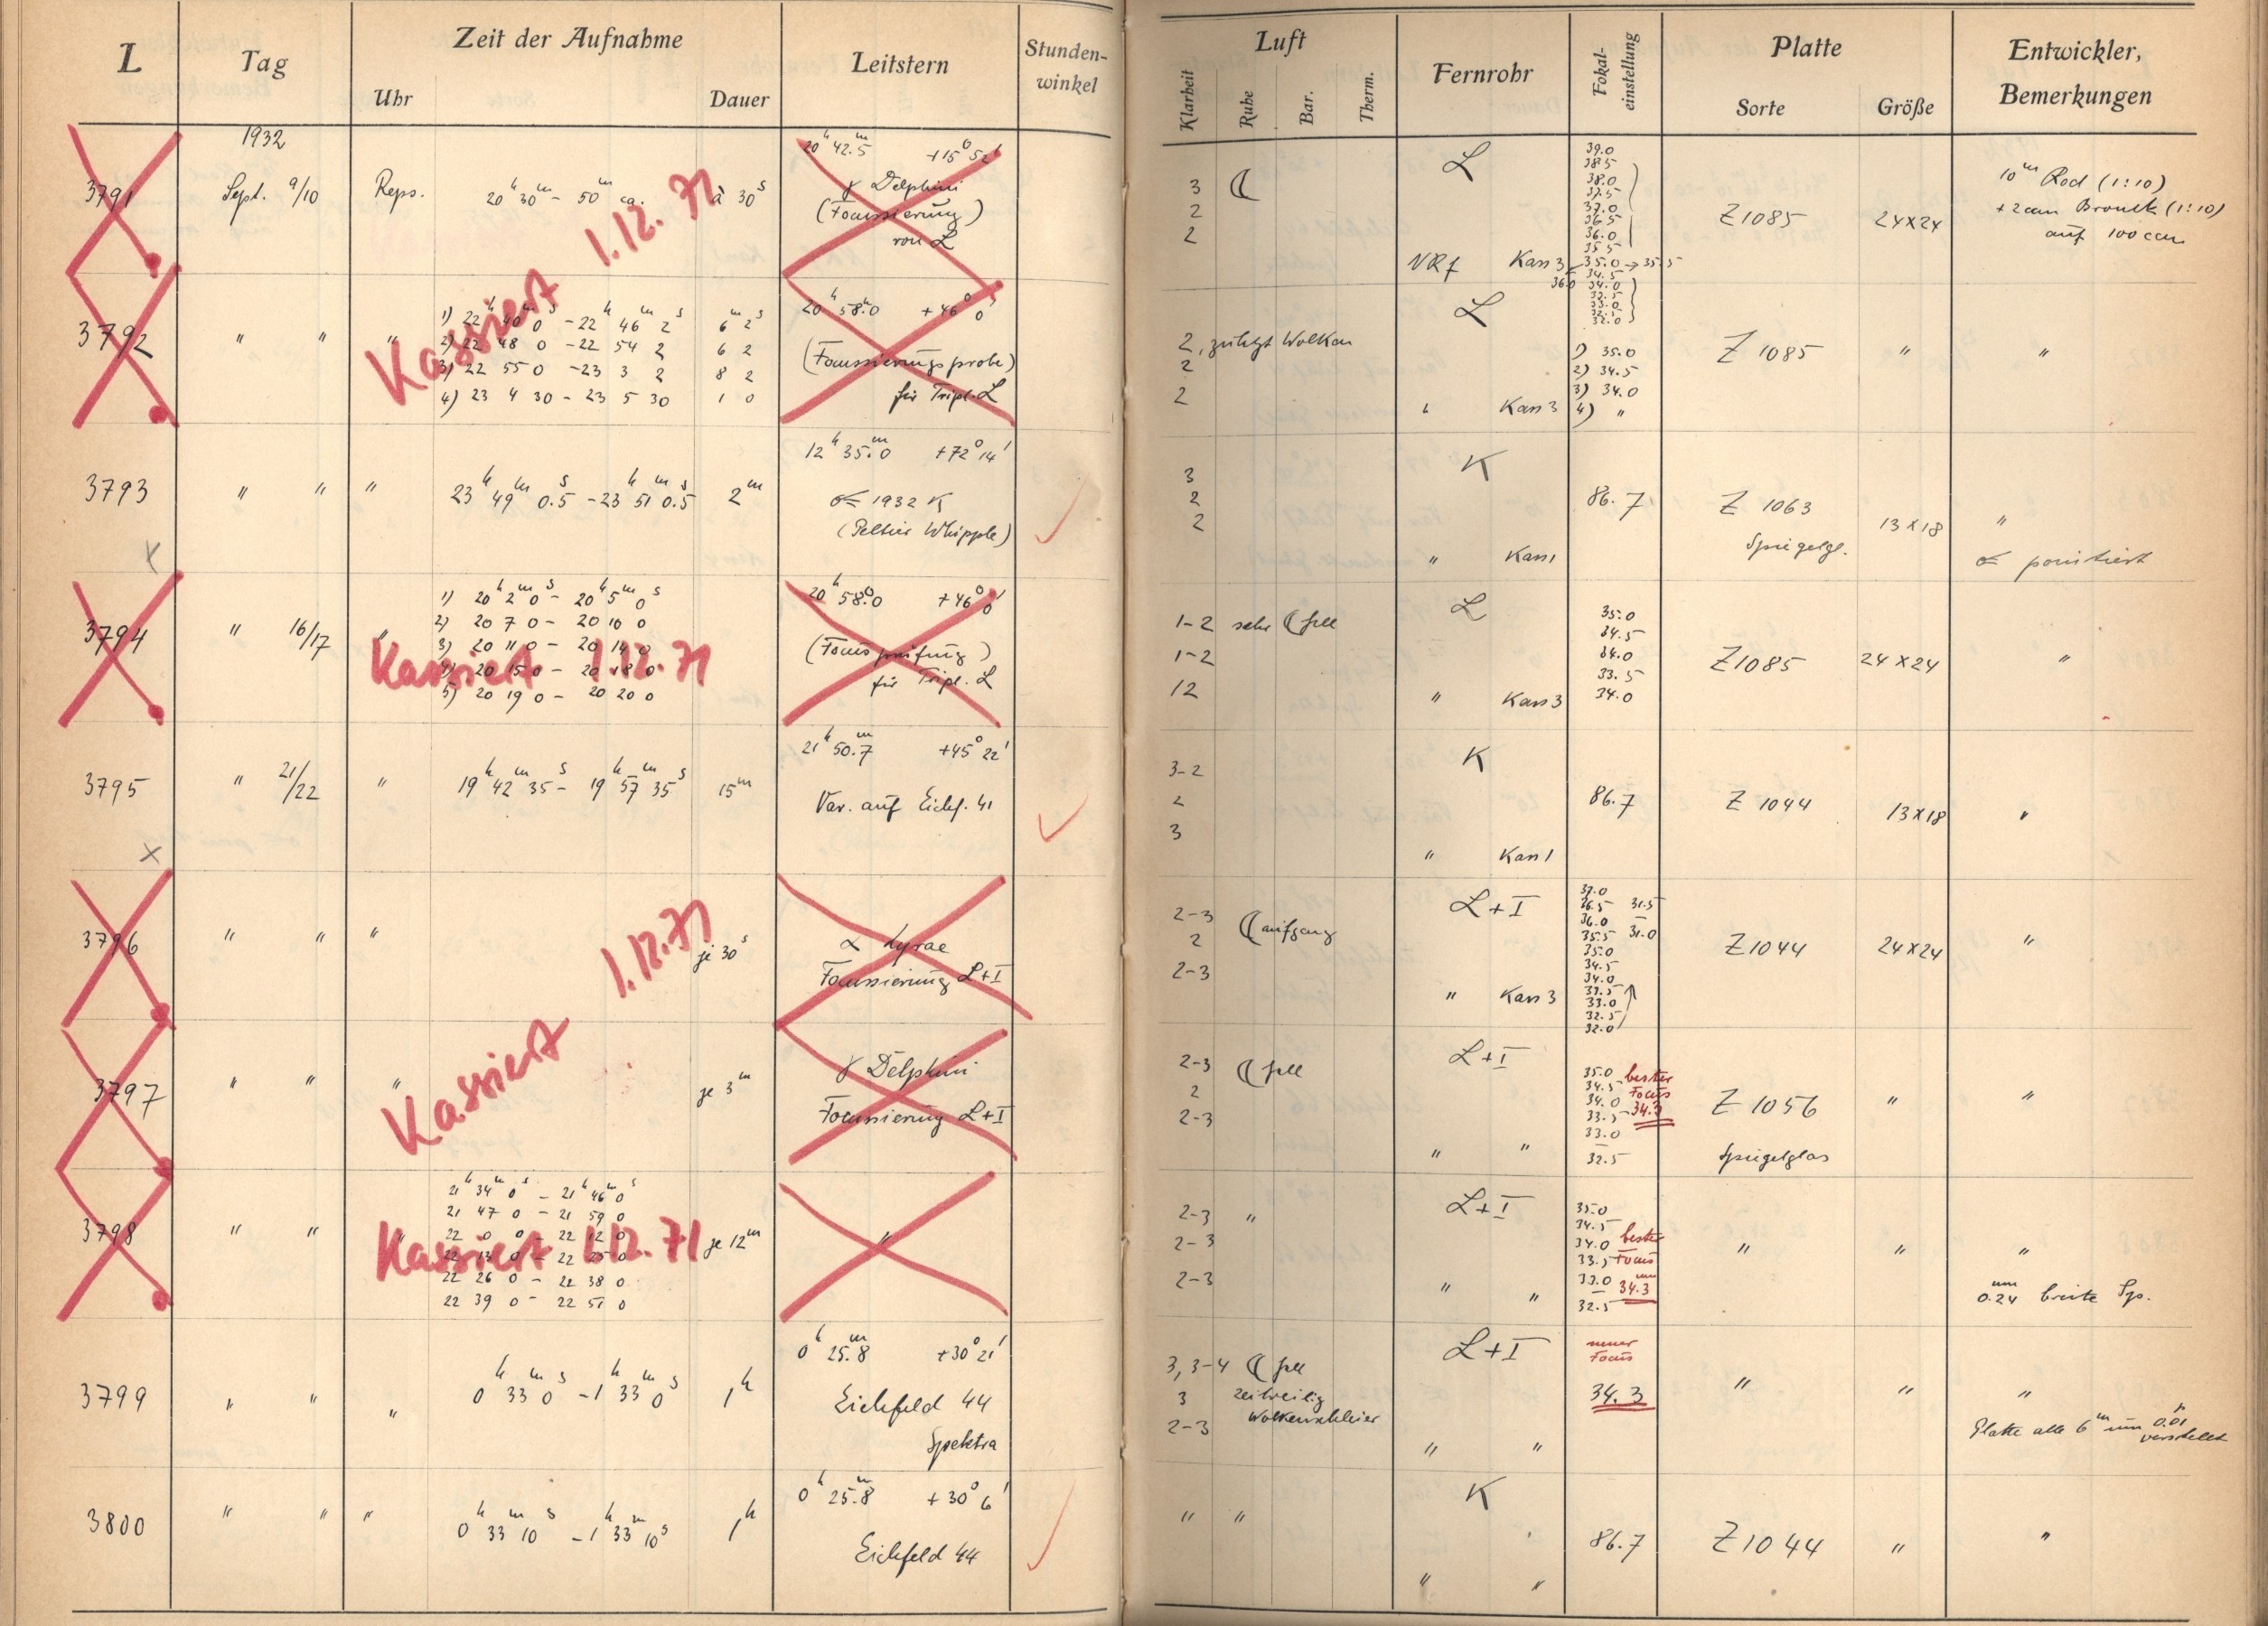 L Tag Zeit der Aufnahme Leitstern Stunden-
winkel
Uhr Dauer
Luft Fernrohr Fokal-
einstellung Platte Entwickler,
Bemerkungen
Klarheit Ruhe Bar. Therm. Sorte Größe
1932
3791 Sept. 9/10 Reps. 20h 30m - 50m ca. à 30s
20h 42.5m +15° 52'
γ Delphini
(Focussierung)
von L
3
2
2
L
VRf Kass 3
39.0
38.5
38.0
37.5
37.0
36.5
36.0
35.5
35.0 → 35.5
34.5
36.0 34.0
33.5
33.0
32.5
32.0
Z1085 24x24
10m Rod (1:10)
+2ccm Bromk (1:10)
auf 100 ccm
Kassiert 1.12.71
3792 " " "
1) 22h 40m 0s - 22h 46m 2s 6m 2s
2) 22 48 0 - 22 54 2 6 2
3) 22 55 0 - 23 3 2 8 2
4) 23 4 30 - 23 5 30 1 0
20h 58.0m +46° 0'
(Focussierungsprobe)
für Tripl. L
2, zuletzt Wolken
2
2
L
" Kass 3
1) 35.0
2) 34.5
3) 34.0
4) "
Z 1085 " "
3793 " " " 23h 49m 0.5s - 23h 51m 0.5s 2m
12h 35.0m +72° 14'
☄ 1932 K
(Peltier Whipple)
3
2
2
K
" Kass 1
86.7
Z 1063
Spiegelgl.
13x18
"
☄ pointiert
x
3794 " 16/17 "
1) 20h 2m 0s - 20h 5m 0s
2) 20 7 0 - 20 10 0
3) 20 11 0 - 20 14 0
4) 20 15 0 - 20 18 0
5) 20 19 0 - 20 20 0
Kassiert 1.12.71
20h 58.0m +46° 0'
(Focusprüfung)
für Tripl. L
1-2 sehr ☾ hell
1-2
12
L
" Kass 3
35.0
34.5
34.0
33.5
34.0
Z1085 24x24 "
3795 " 21/22 " 19h 42m 35s - 19h 57m 35s 15m
21h 50.7m +45° 22'
Var. auf Eichf. 41
3-2
2
3
K
" Kass 1
86.7
Z 1044 13x18 "
x
3796 " " " je 30s
α Lyrae
Focussierung L+I
2-3
2
2-3
☾ aufgang
L+I
" Kass 3
37.0
36.5 31.5
36.0
35.5 31.0
35.0
34.5
34.0
33.5
33.0
32.5
32.0
Z1044 24x24 "
Kassiert 1.12.71
3797 " " " je 3m
γ Delphini
Focussierung L+I
2-3
2
2-3
☾ hell
L+I
" "
35.0
34.5
34.0
33.5
33.0
32.5
bester
Focus
34.3
Z 1056
Spiegelglas
" "
3798 " " "
21h 34m 0s - 21h 46m 0s
21 47 0 - 21 59 0
22 0 0 - 22 12 0
22 13 0 - 22 25 0
22 26 0 - 22 38 0
22 39 0 - 22 51 0
je 12m
Kassiert 1.12.71
"
2-3 "
2-3
2-3
L+I
" "
35.0
34.5
34.0
33.5
33.0
32.5
bester
Focus
34.3
" " "
0.24 mm breite Sp.
3799 " " " 0h 33m 0s - 1h 33m 0s 1h
0h 25.8m +30° 21'
Eichfeld 44
Spektra
3, 3-4 ☾ hell
3 zeitweilig
2-3 Wolkenschleier
L+I
" "
neuer
Focus
34.3
" " "
Platte alle 6m um 0.01
verstellt
3800 " " " 0h 33m 10s - 1h 33m 10s 1h
0h 25.8m +30° 6'
Eichfeld 44
" "
K
" "
86.7
Z1044 " "